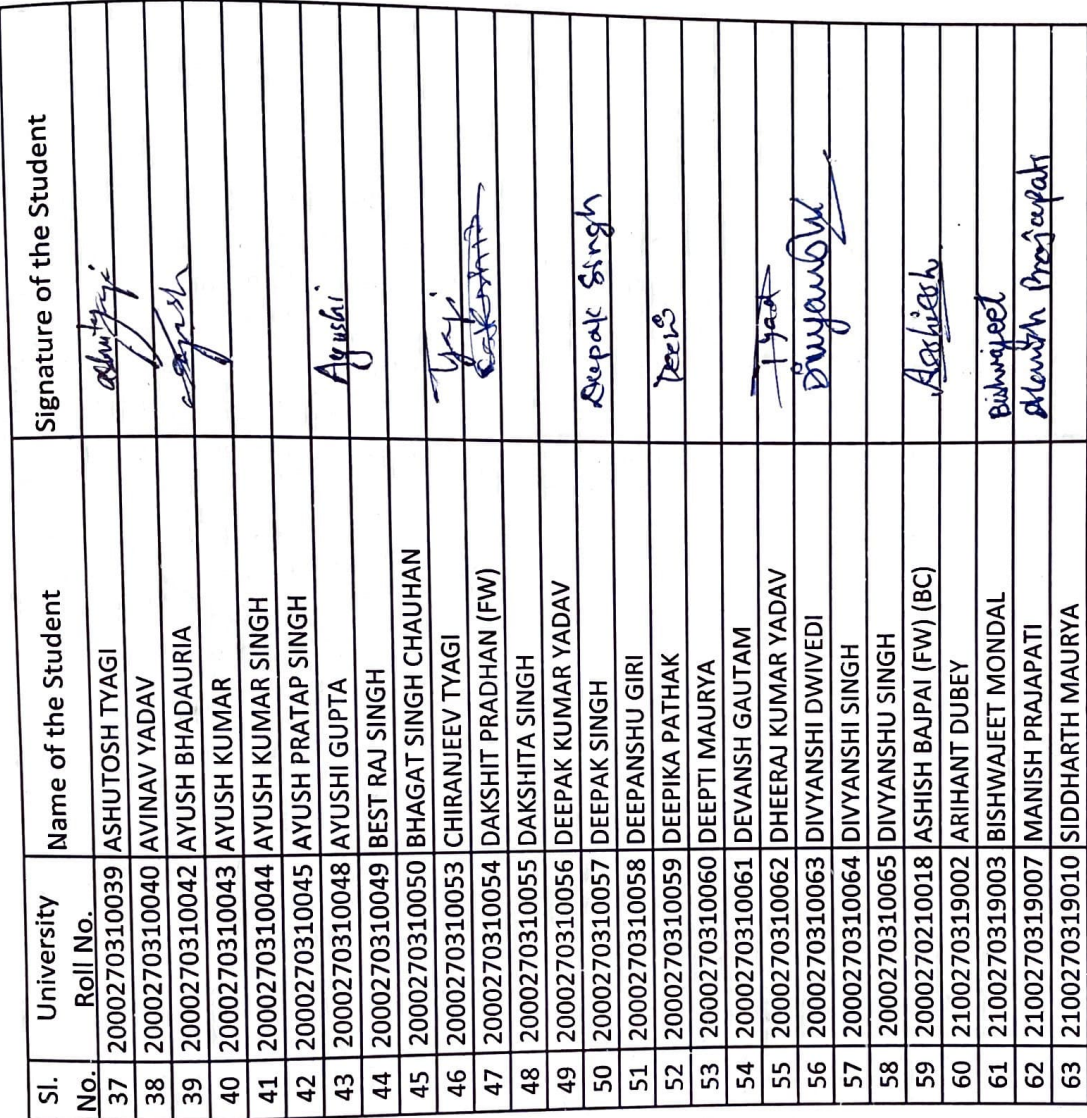 Sl. No. University Roll No. Name of the Student Signature of the Student
37 2000270310039 ASHUTOSH TYAGI
38 2000270310040 AVINAV YADAV
39 2000270310042 AYUSH BHADAURIA
40 2000270310043 AYUSH KUMAR
41 2000270310044 AYUSH KUMAR SINGH
42 2000270310045 AYUSH PRATAP SINGH
43 2000270310048 AYUSHI GUPTA Ayushi
44 2000270310049 BEST RAJ SINGH
45 2000270310050 BHAGAT SINGH CHAUHAN
46 2000270310053 CHIRANJEEV TYAGI Tyagi
47 2000270310054 DAKSHIT PRADHAN (FW) Dakshit
48 2000270310055 DAKSHITA SINGH
49 2000270310056 DEEPAK KUMAR YADAV
50 2000270310057 DEEPAK SINGH Deepak Singh
51 2000270310058 DEEPANSHU GIRI
52 2000270310059 DEEPIKA PATHAK
53 2000270310060 DEEPTI MAURYA
54 2000270310061 DEVANSH GAUTAM
55 2000270310062 DHEERAJ KUMAR YADAV
56 2000270310063 DIVYANSHI DWIVEDI Divyanshi
57 2000270310064 DIVYANSHI SINGH
58 2000270310065 DIVYANSHU SINGH
59 2000270210018 ASHISH BAJPAI (FW) (BC) Ashish
60 2100270319002 ARIHANT DUBEY
61 2100270319003 BISHWAJEET MONDAL Bishwajeet
62 2100270319007 MANISH PRAJAPATI Manish Prajapati
63 2100270319010 SIDDHARTH MAURYA